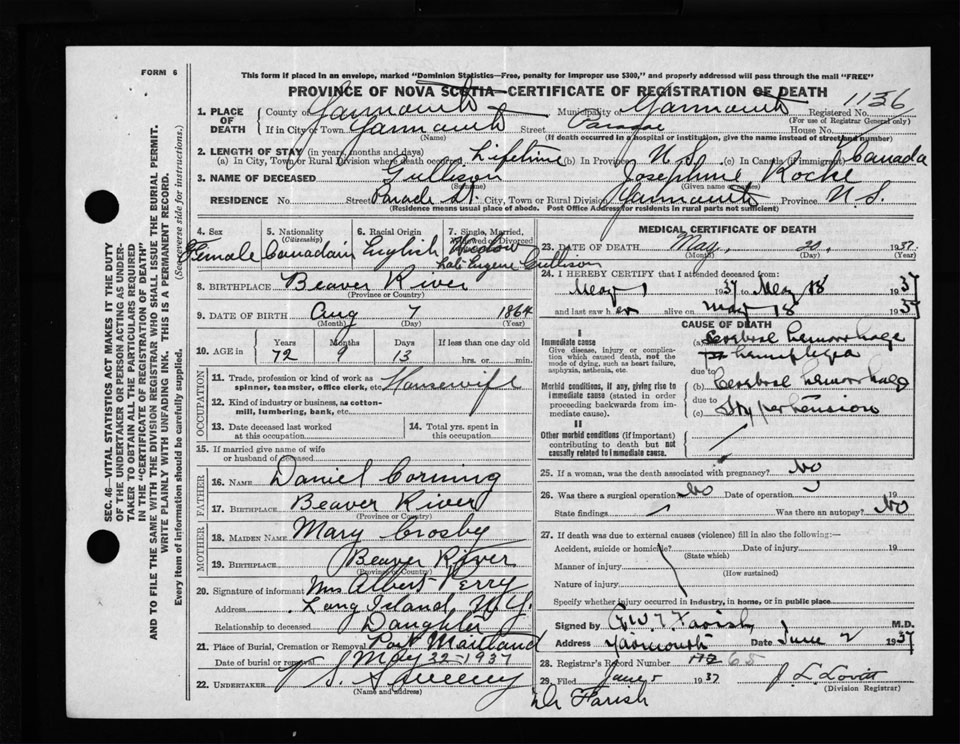 FORM 6
This form if placed in an envelope, marked "Dominion Statistics—Free, penalty for improper use $300," and properly addressed will pass through the mail "FREE"
PROVINCE OF NOVA SCOTIA—CERTIFICATE OF REGISTRATION OF DEATH
1136
1. PLACE OF DEATH County of Yarmouth Municipality of Yarmouth Registered No.
(For use of Registrar General only)
If in City or Town Yarmouth Street Parade House No.
(If death occurred in a hospital or institution, give the name instead of street and number)
2. LENGTH OF STAY (in years, months and days)
(a) In City, Town or Rural Division where death occurred Lifetime (b) In Province N.S. (c) In Canada (if immigrant) Canada
3. NAME OF DECEASED Gullison Josephine Rocke
(Surname) (Given name or names)
RESIDENCE No. Street Parade St. City, Town or Rural Division Yarmouth Province N.S.
(Residence means usual place of abode. Post Office Address for residents in rural parts not sufficient)
4. Sex 5. Nationality (Citizenship) 6. Racial Origin 7. Single, Married, Widowed or Divorced
Female Canadian English Widow
Late Eugene Gullison
8. BIRTHPLACE Beaver River
(Province or Country)
9. DATE OF BIRTH Aug 7 1864
(Month) (Day) (Year)
10. AGE in Years Months Days If less than one day old
72 9 13 hrs. or min.
OCCUPATION
11. Trade, profession or kind of work as spinner, teamster, office clerk, etc. Housewife
12. Kind of industry or business, as cotton-mill, lumbering, bank, etc.
13. Date deceased last worked at this occupation
14. Total yrs. spent in this occupation
15. If married give name of wife or husband of deceased
FATHER
16. NAME Daniel Corning
17. BIRTHPLACE Beaver River
(Province or Country)
MOTHER
18. MAIDEN NAME Mary Crosby
19. BIRTHPLACE Beaver River
(Province or Country)
20. Signature of informant Mrs Albert Perry
Address Long Island, N.Y.
Relationship to deceased Daughter
21. Place of Burial, Cremation or Removal Port Maitland
Date of burial or removal May 22-1937
22. UNDERTAKER V. S. Sweeny
(Name and address)
MEDICAL CERTIFICATE OF DEATH
23. DATE OF DEATH May, 20, 1937
(Month) (Day)
24. I HEREBY CERTIFY that I attended deceased from:
May 1 1937 to May 18 1937
and last saw her alive on May 18 1937
CAUSE OF DEATH
I
Immediate cause
Give disease, injury or complication which caused death, not the mode of dying, such as heart failure, asphyxia, asthenia, etc.
(a) Cerebral hemorrhage
hemiplegia
due to
Morbid conditions, if any, giving rise to immediate cause (stated in order proceeding backwards from immediate cause).
(b) Cerebral hemorrhage
due to
(c) Hypertension
II
Other morbid conditions (if important) contributing to death but not causally related to immediate cause
25. If a woman, was the death associated with pregnancy? No
26. Was there a surgical operation No Date of operation 19
State findings Was there an autopsy? No
27. If death was due to external causes (violence) fill in also the following:—
Accident, suicide or homicide? Date of injury 19
(State which)
Manner of injury
(How sustained)
Nature of injury
Specify whether injury occurred in industry, in home, or in public place
Signed by G.W.T. Farish M.D.
Address Yarmouth Date June 2 1937
28. Registrar's Record Number 65
29. Filed June 5 1937 J. L. Lovitt
(Division Registrar)
Dr Farish
SEC. 46—VITAL STATISTICS ACT MAKES IT THE DUTY
OF THE UNDERTAKER OR PERSON ACTING AS UNDER-
TAKER TO OBTAIN ALL THE PARTICULARS REQUIRED
IN THE "CERTIFICATE OF REGISTRATION OF DEATH"
AND TO FILE THE SAME WITH THE DIVISION REGISTRAR WHO SHALL ISSUE THE BURIAL PERMIT.
WRITE PLAINLY WITH UNFADING INK. THIS IS A PERMANENT RECORD.
Every item of information should be carefully supplied. (See reverse side for instructions.)